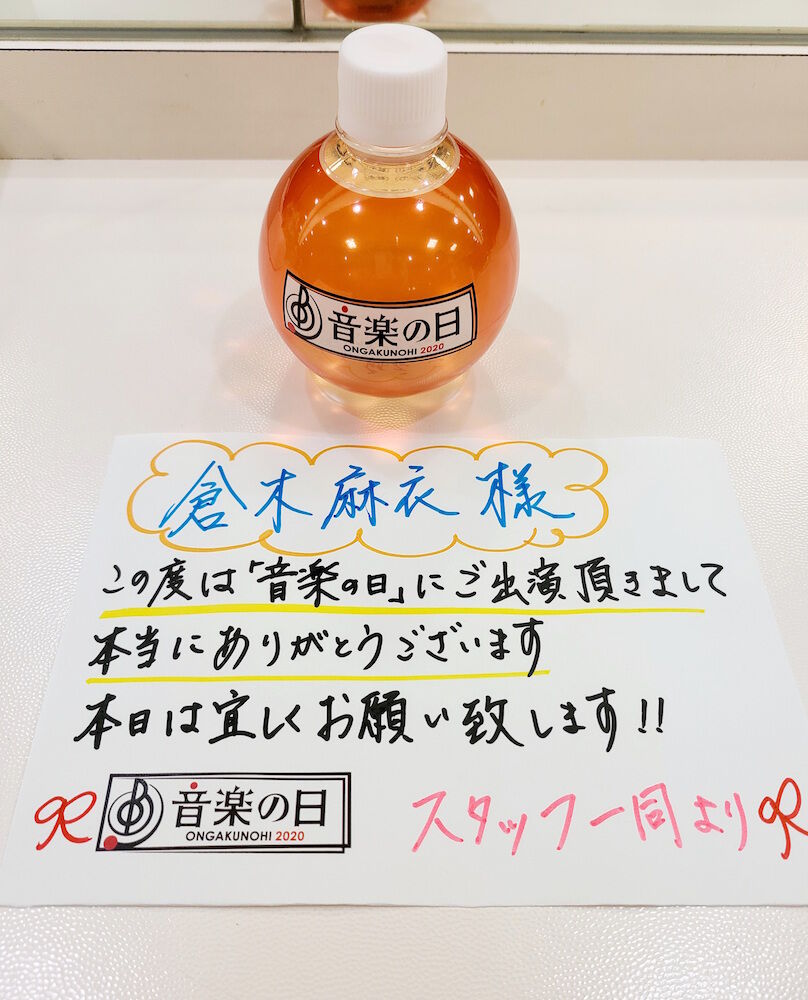 音楽の日
ONGAKUNOHI 2020
倉木麻衣 様
この度は「音楽の日」にご出演頂きまして
本当にありがとうございます
本日は宜しくお願い致します!!
音楽の日
ONGAKUNOHI 2020
スタッフ一同より